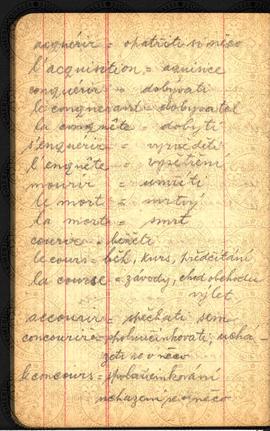 acquérir = opatřiti si něco
l'acquisition =
conquérir = dobývati
le conquerant = dobyvatel
la conquête = dobytí
s'enquérir = vyzvěděti
l'enquête = vyšetření
mourir = umříti
le mort = mrtvý
la mort = smrt
courir = běžeti
le cours = běh, kurs, předčítání
la course = závody, chod obchodu
výlet
accourir = spěchati sem
concourir = spoluúčinkovati, uchá-
zeti se o něco
le concours = spoluúčinkování
ucházení se o něco